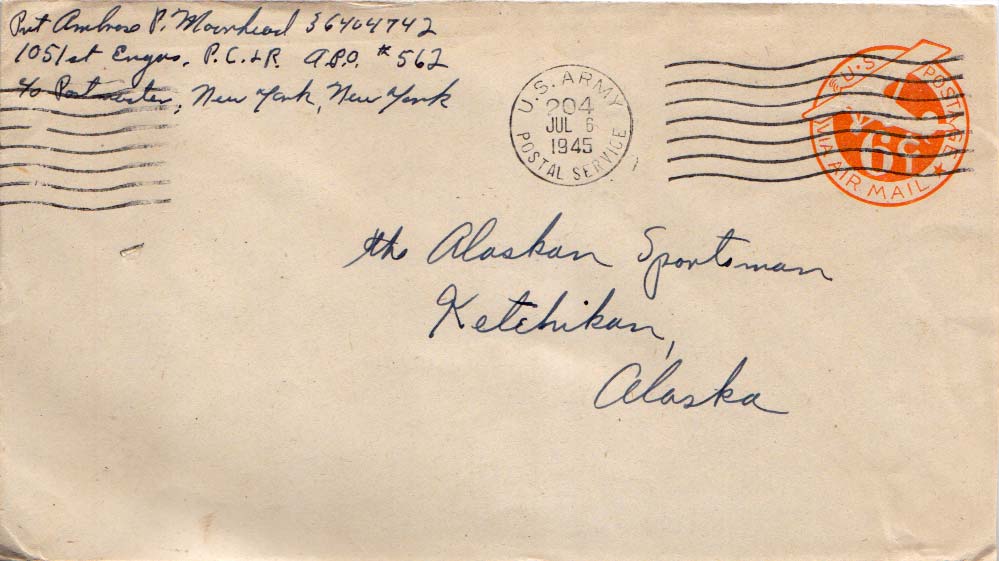 Pvt Ambrose P. Moorhead 36404742
1051st Engrs. P.C.&R. A.P.O. #562
c/o Postmaster, New York, New York
U.S. ARMY
204
JUL 6
1945
POSTAL SERVICE
U.S. POSTAGE
6¢
VIA AIR MAIL
the Alaskan Sportsman
Ketchikan,
Alaska